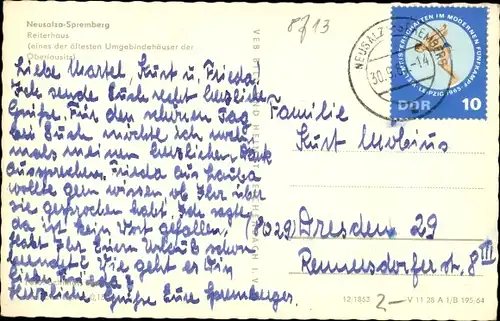 Neusalza-Spremberg
Reiterhaus
(eines der ältesten Umgebindehäuser der
Oberlausitz)
8/13
Liebe Martel, Kurt u. Frieda,
Ich sende Euch recht herzliche
Grüße. Für den schönen Tag
bei Euch möchte ich noch
mals meinen herzlichen Dank
aussprechen. Frieda aus Lauba
wollte gern wissen ob Ihr über
sie gesprochen habt. Ich sagte
da ist kein Wort gefallen.
Habt Ihr Euern Urlaub schon
beendet? Wie geht es Dir
liebe Frieda?
Herzliche Grüße Eure Spremberger.
NEUSALZA-SPREMBERG
30. -14
WELTMEISTERSCHAFTEN IM MODERNEN FÜNFKAMPF
LEIPZIG 1965
DDR 10
Familie
Kurt Mobius
(8029) Dresden 29
Rennersdorfer str. 8 III
12/1853 2- V 11 28 A I/B 195/64